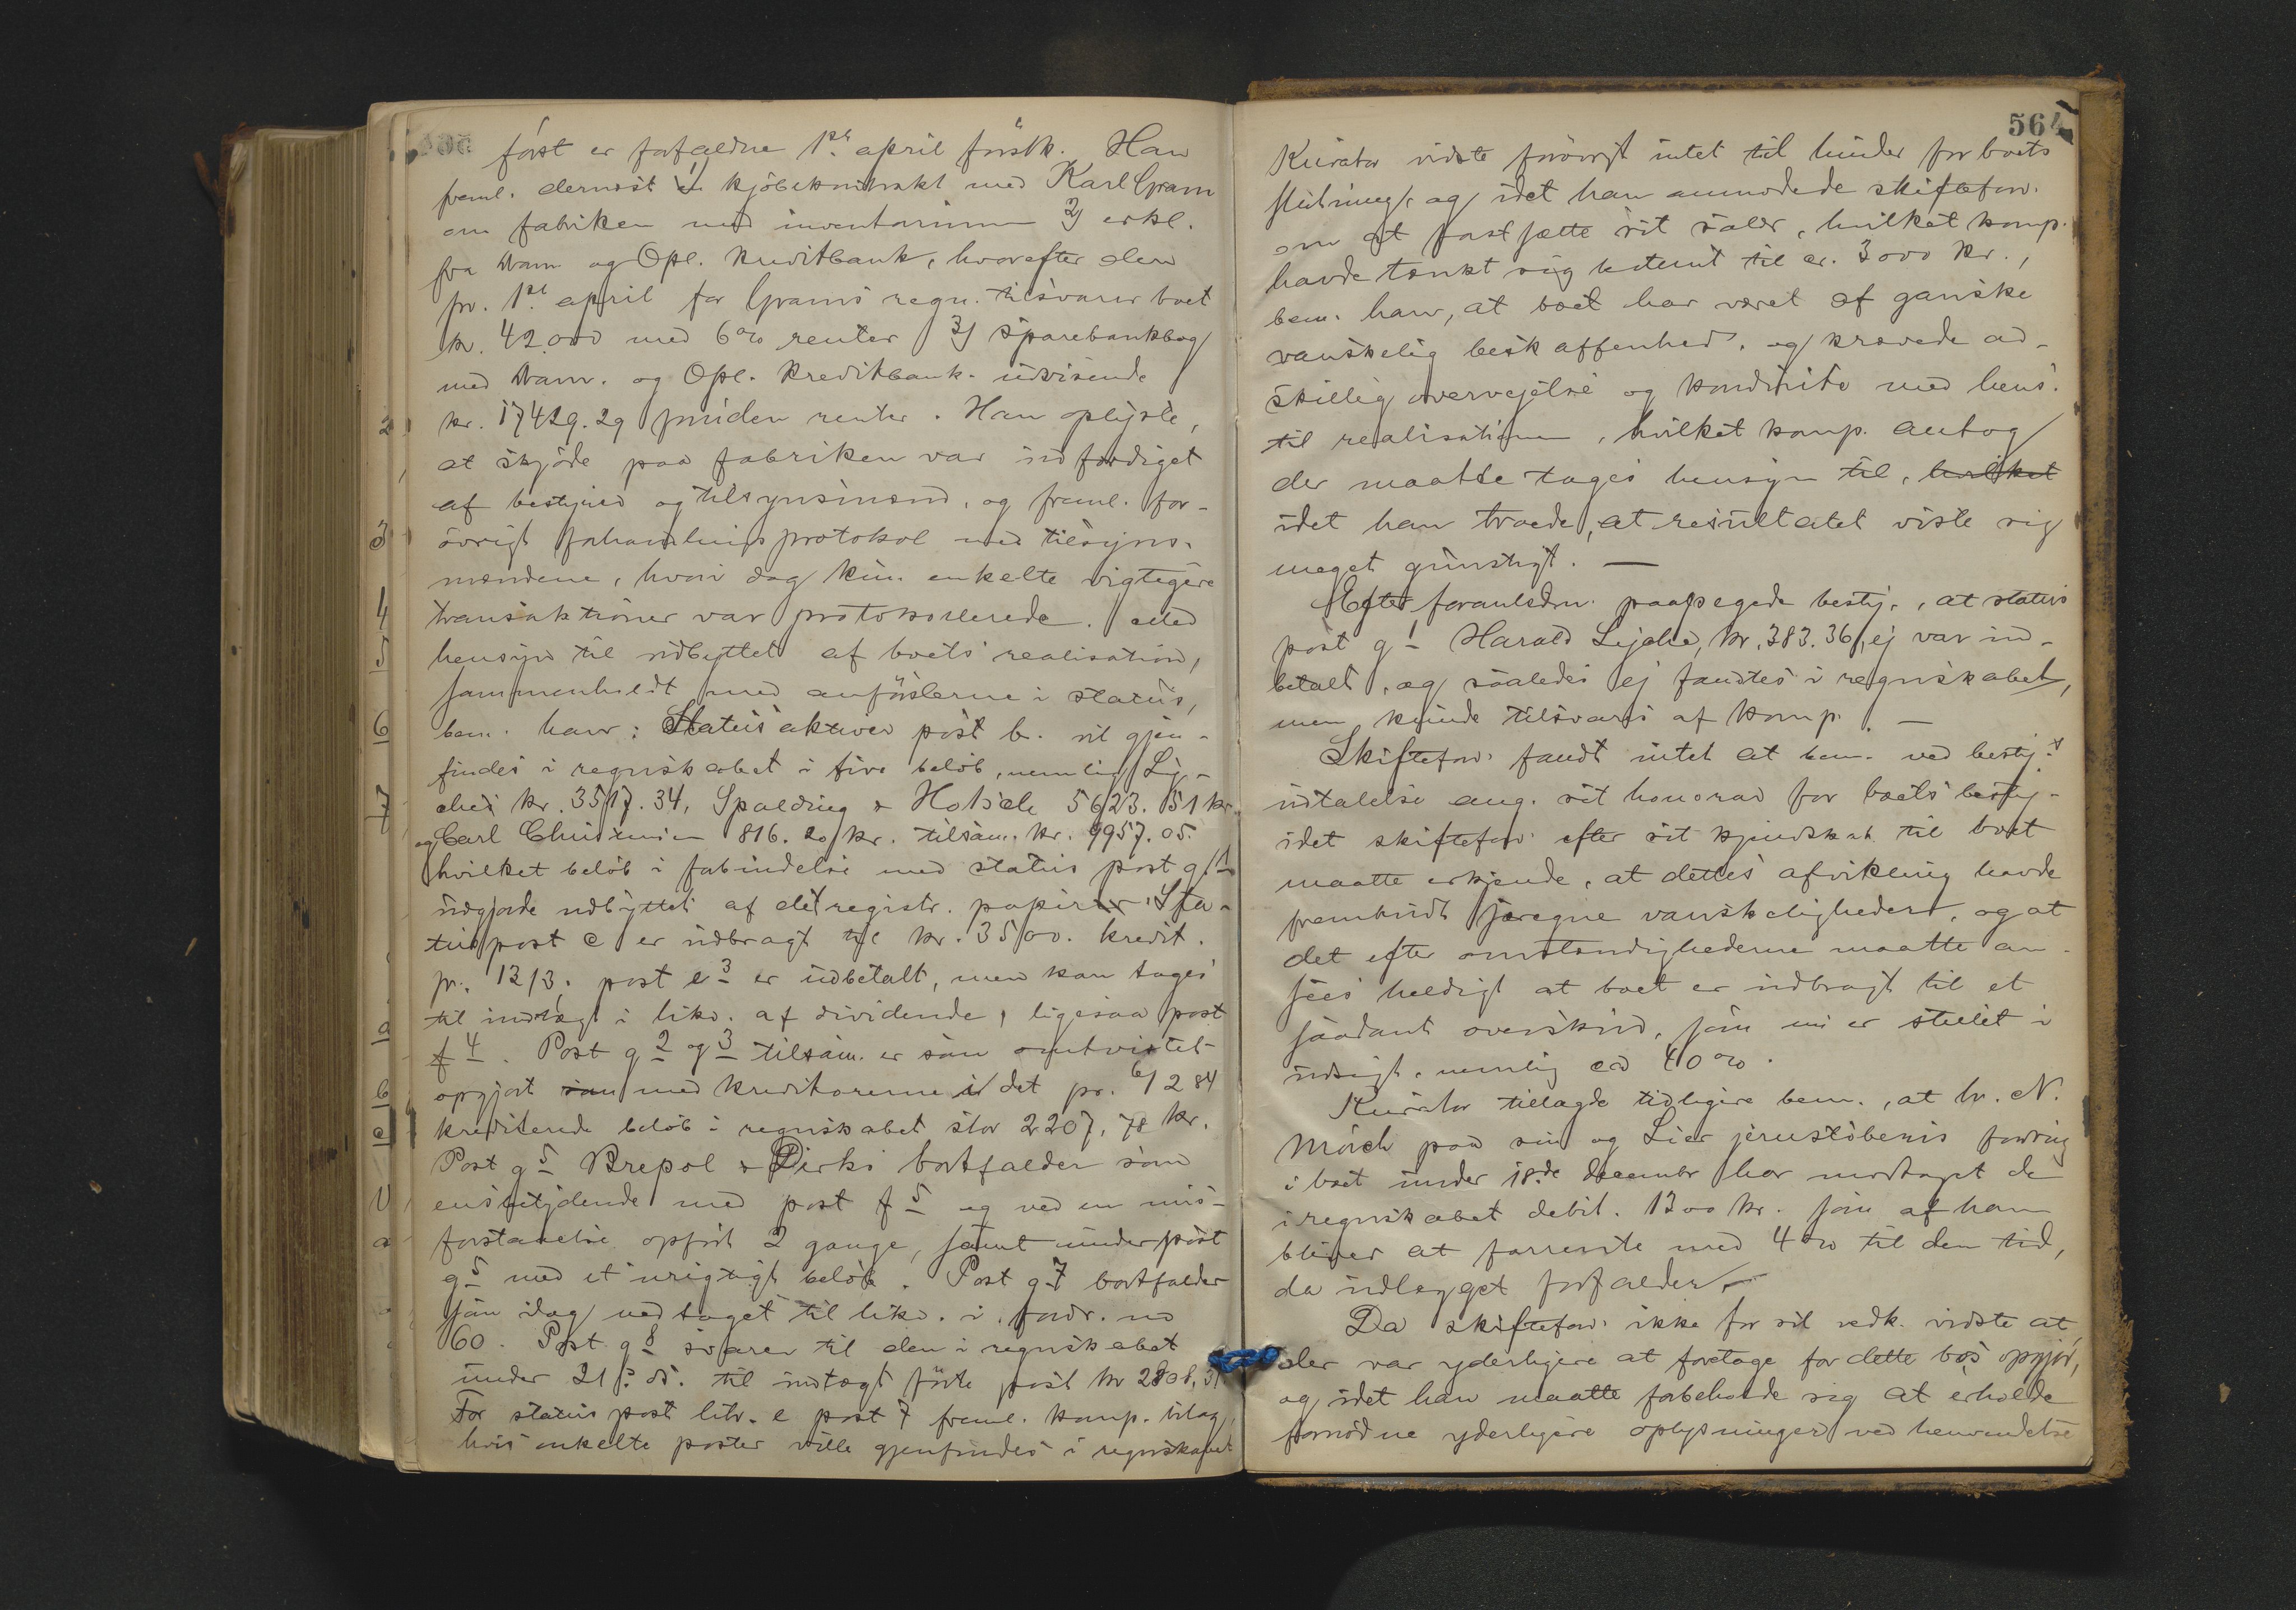 først er forfaldne 1ste april førstk. Han
freml. dernæst 1) kjøbekontrakt med Karl Gram
om fabriken med inventarium 2) erkl.
fra Dram og Opl. Kreditbank, hvorefter den
pr. 1ste april for Grams regn. tilsvarer boet
kr. 42.000 med 6 % renter 3) Sparebankbog
med Dram. og Opl. Kreditbank udvisende
kr. 17429.29 foruden renter. Han oplyste,
at skjøde paa fabriken var indfærdiget
af bestyrer og tilsynsmænd, og freml. for-
øvrigt forhandlingsprotokol med tilsyns-
mændene, hvori dog kun enkelte vigtigere
transaktioner var protokollerede. Med
hensyn til udbyttet af boets realisation,
sammenholdt med anførslerne i status,
bem. han: Status aktiver post b. vil gjen-
findes i regnskabet i five beløb, nemlig Lig-
ches kr. 3517.34, Spalding & Holsele 5623.51 kr.
og Carl Christensen 816.20 kr. tilsam. kr. 9957.05.
hvilket beløb i forbindelse med status post g 1
udgjorde udbyttet af det registr. papir. Sta-
tus post c er udbragt til kr. 3500. kredit.
pr. 13/3. post e 3 er udbetalt, men kan tages
til indtægt i likv. af dividende, ligesaa post
f 4. Post g 2 og 3 tilsam. er som omtvistet
opgjort med kreditorerne i det pr. 6/2 84
krediterede beløb i regnskabet stor 2207,78 kr.
Post g 5 Brepol & Dirks bortfalder som
ensbetydende med post f 5 og ved en mis-
forstaaelse opført 2 gange, samt under post
g 5 med et urigtigt beløb. Post g 7 bortfalder
som idag vedtaget til likv. i fordr. no
60. Post g 8 svarer til den i regnskabet
under 21 s. d. til indtægt førte post kr 2808,31
For status post litr. e post 7 freml. komp. bilag,
hvis enkelte poster ville gjenfindes i regnskabet
2
3
4
5
6
7
a
b
c
564
Kurator vidste forøvrigt intet til hinder for boets
slutning, og idet han anmodede skiftefor.
om at fastsætte sit salær, hvilket komp.
havde tænkt sig bestemt til ca. 3000 kr.,
bem. han, at boet har været af ganske
vanskelig beskaffenhed, og krævede ad-
skillig overvejelse og konduite med hens.
til realisationen, hvilket komp. antog
der maatte tages hensyn til, hvilket
idet han troede, at resultatet viste sig
meget gunstigt. —
Efter foranledn. paapegede besty., at status
post g 1 Harald Lyche, kr. 383.36, ej var ind-
betalt, og saaledes ej fandtes i regnskabet,
men kunde tilsvares af komp. —
Skiftefor. fandt intet at bem. ved besty.s
udtalelse ang. sit honorar for boets besty-
idet skiftefor. efter sit kjendskab til boet
maatte erkjende, at dettes afvikling havde
frembudt særegne vanskeligheder, og at
det efter omstændighederne maatte an-
sees heldigt at boet er udbragt til et
saadant overskud, som nu er stillet i
udsigt, nemlig ca 40 %.
Kurator tillagde tidligere bem., at hr. N.
Mørch paa sin og Lier jernstøberis fordring
i boet under 18.de december har modtaget de
i regnskabet debit. 1300 kr. som af ham
bliver at forrente med 4 % til den tid,
da udlægget forfalder. —
Da skiftefor. ikke for sit vedk. vidste at
der var yderligere at foretage for dette bos opgjør,
og idet han maatte forbeholde sig at erholde
fornødne yderligere oplysninger ved henvendelse